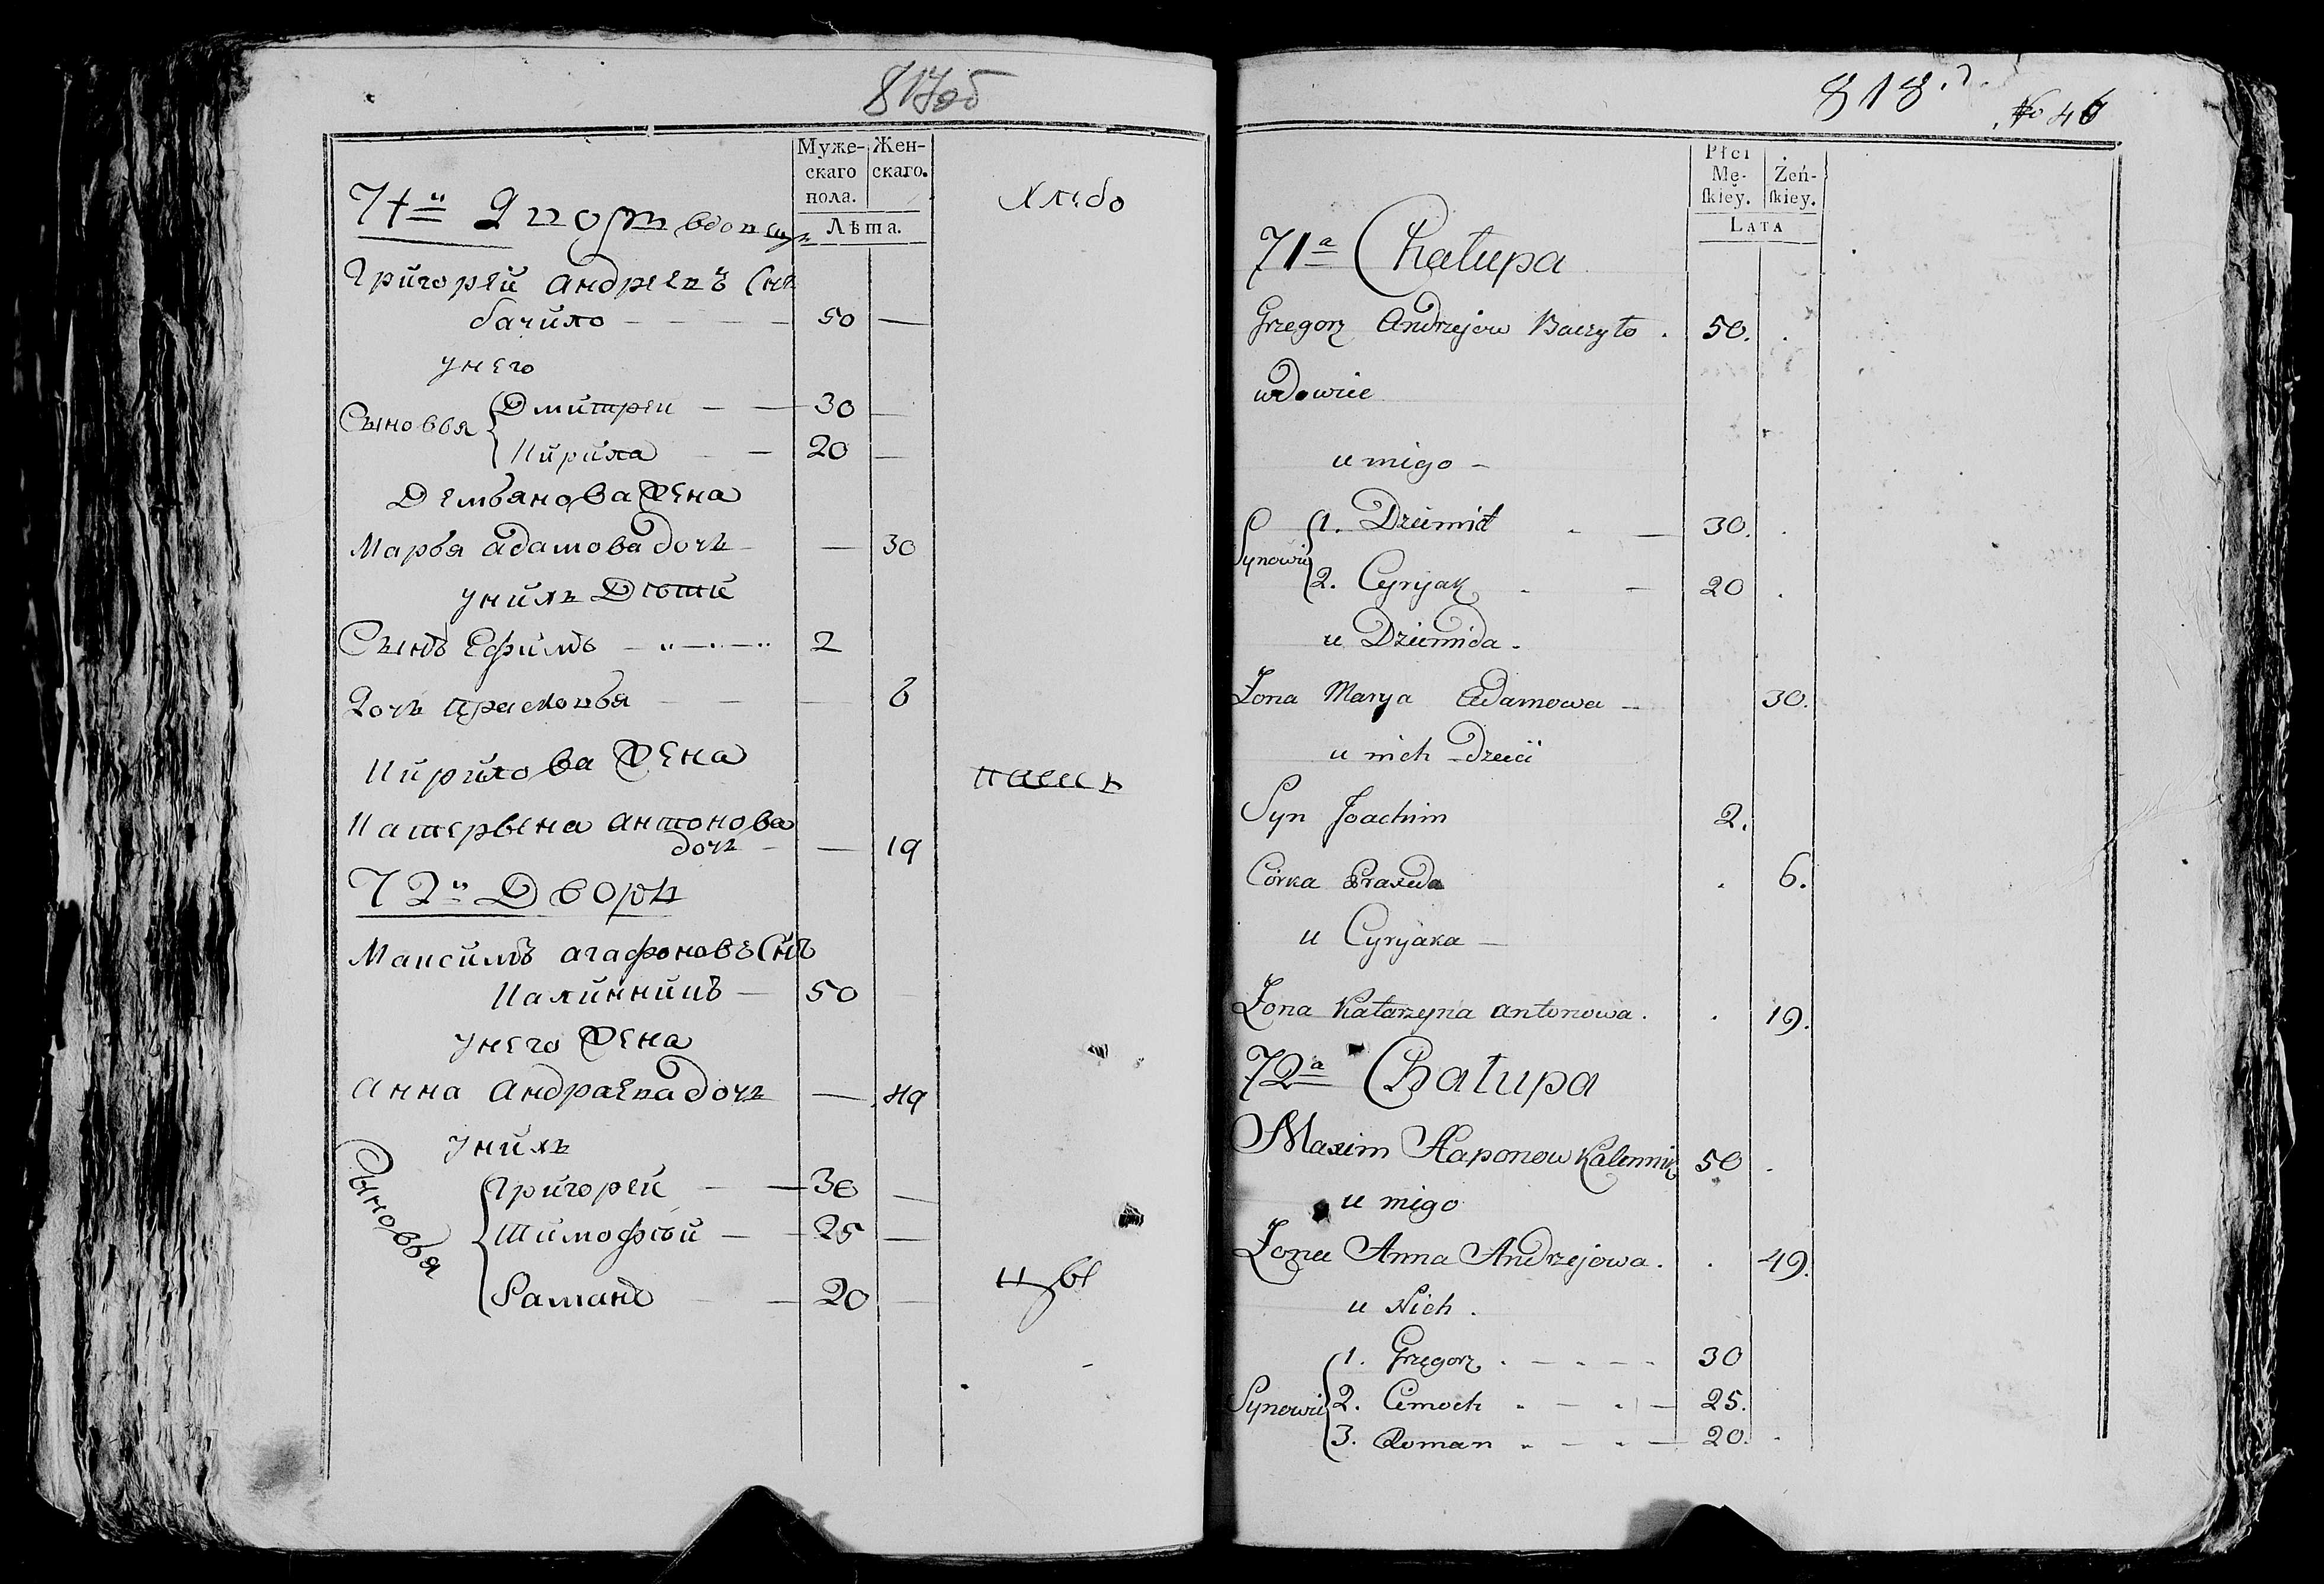 817об
Муже- Жен-
скаго скаго.
пола.
Лѣта.
71й Дворъ вдовецъ
Хлебо
Григорей Андреевъ Снъ
бачило 50
у него
Сыновья
Дмитрей 30
Кирила 20
Демьянова жена
Марья адамова дочь 30
у нихъ Дѣти
Сынъ Ефимъ 2
Дочь Прасковья 6
Кирилова жена
паш
Катерьена антонова
дочь 19
72й Дворъ
Максимъ агафоновъ Снъ
Калинникъ 50
у него жена
Анна Андраева дочь 49
у нихъ
Сыновья
Григорей 30
Тимофѣй 25
Раманъ 20
цы
818.
No 46
Płci
Mę- Żeń-
ſkiey. ſkiey.
LATA
71a Chałupa
Grzegorz Andrzejow Baczyło . 50.
wdowiec
u niego
Synowie
1. Dziemid 30.
2. Cyryjak 20
u Dziemida.
Żona Marya Adamowa 30.
u nich dzieci
Syn Joachim 2.
Córka Praxeda 6.
u Cyryaka
Żona Katarzyna antonowa. 19.
72a Chałupa
Maxim Haponow Kalennik 50
u niego
Żona Anna Andrzejowa. 49.
u Nich.
Synowie
1. Grzegorz 30
2. Cimoch 25.
3. Roman 20.